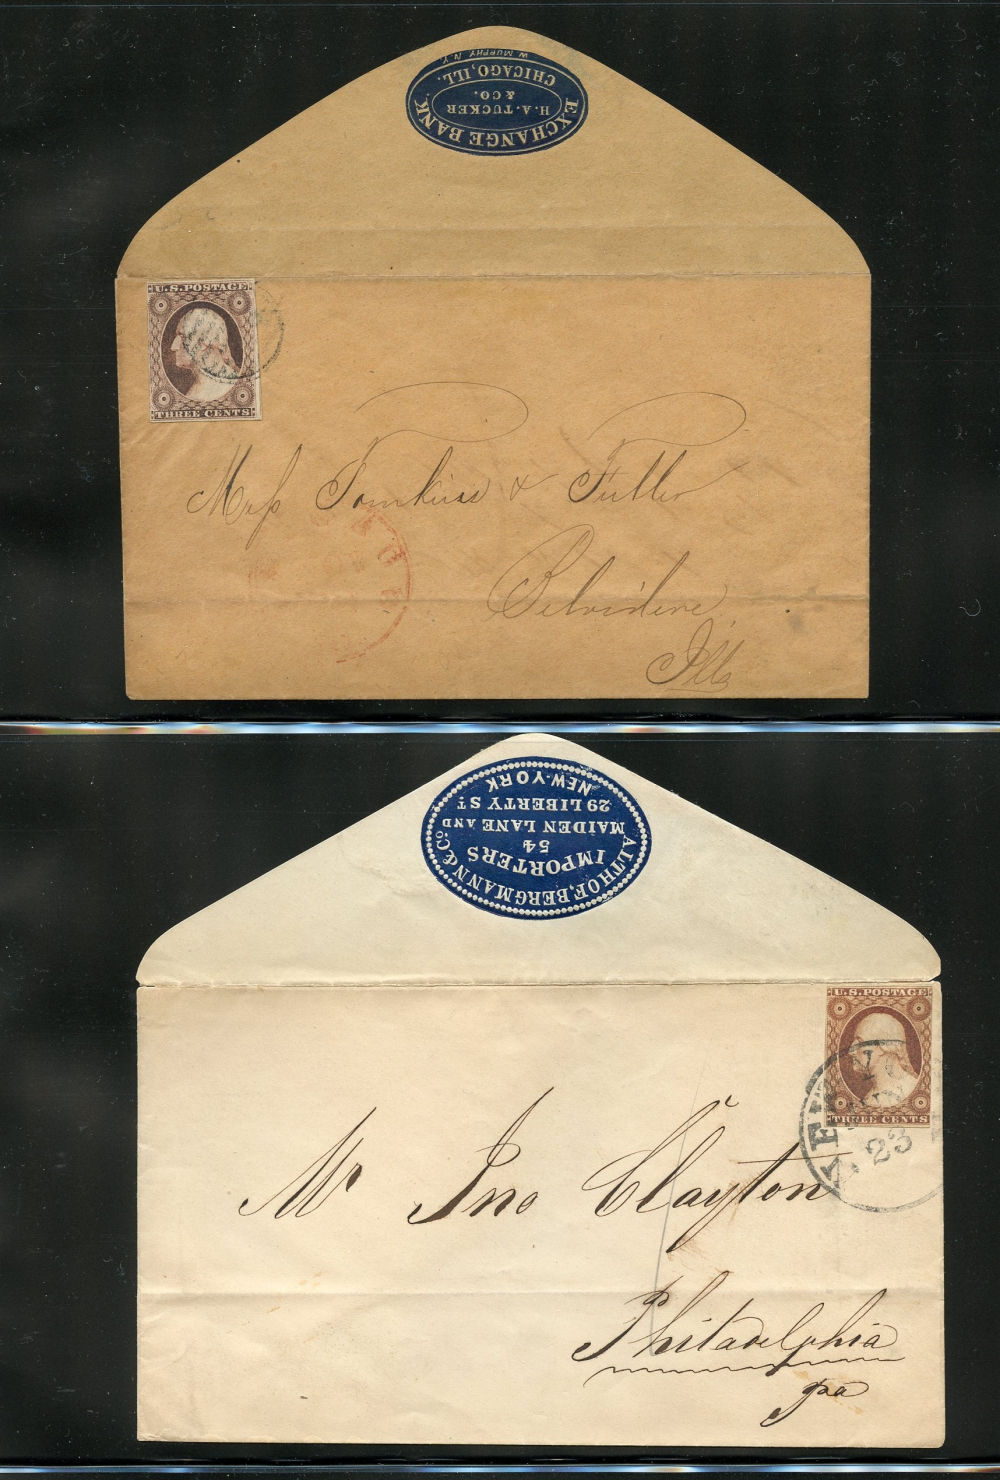 W MURPHY N.Y.
EXCHANGE BANK.
H. A. TUCKER
& CO.
CHICAGO, ILL.
U.S. POSTAGE
THREE CENTS
Mess Tomkins & Fuller
Belvidere
Ills
ALTHOF, BERGMANN & Co
IMPORTERS
54
MAIDEN LANE AND
29 LIBERTY ST
NEW-YORK
U.S. POSTAGE
THREE CENTS
NEW
23
Mr Jno Clayton
Philadelphia
pa